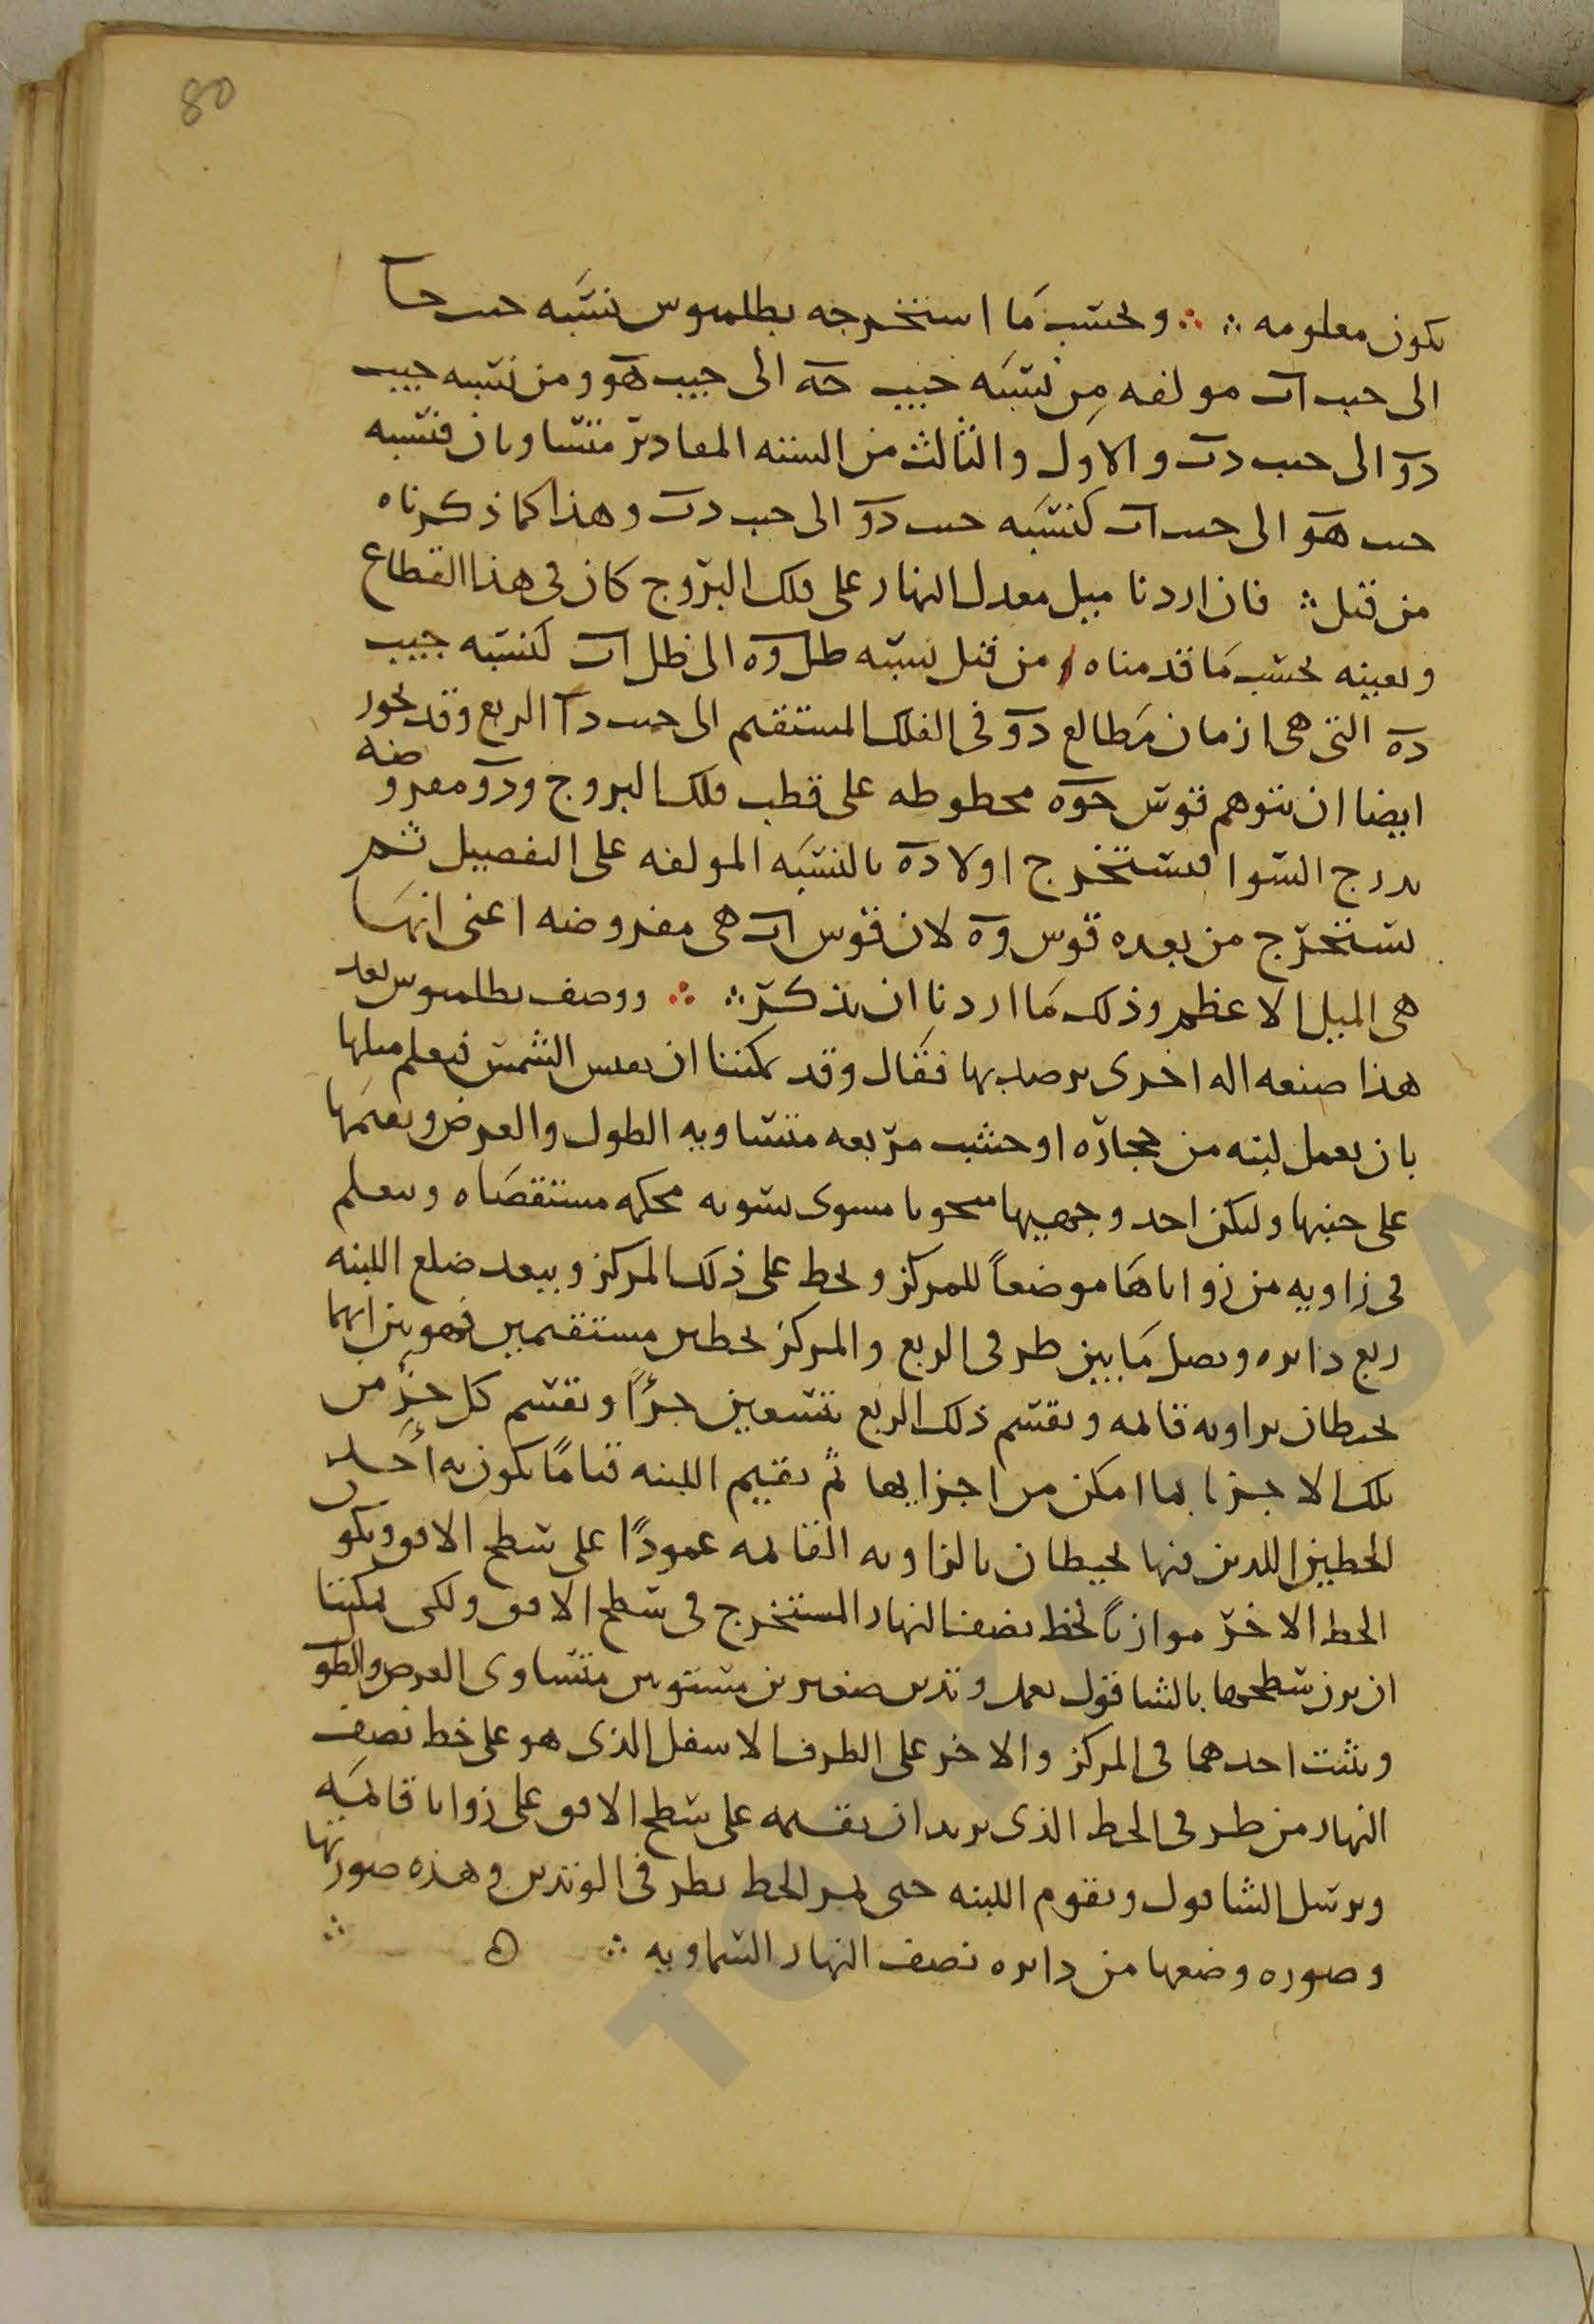 80
يكون معلومه ∴ ∴ وبحسب ما استخرجه بطلميوس نسبه جيب حا
الى جيب اب مولفه من نسبه جيب حه الى جيب هو ومن نسبه جيب
دو الى جيب دب والاول والثالث من السته المقادير متساويان فنسبه
جيب هو الى جيب اب كنسبه جيب دو الى جيب دب وهذا كما ذكرناه
من قبل ∴ فان اردنا ميل معدل النهار على فلك البروج كان في هذا القطاع
وبعينه بحسب ما قدمناه من قبل نسبه ظل وه الى ظل اب كنسبه جيب
ده التى هى ازمان مطالع دو فى الفلك المستقيم الى جيب دا الربع وقد يجوز
ايضا ان نتوهم قوس حوه مخطوطه على قطب فلك البروج ودو مفروضه
بدرج السوا فنستخرج اولا ده بالنسبه المولفه على التفصيل ثم
نستخرج من بعده قوس وه لان قوس اب هى مفروضه اعنى انها
هى الميل الاعظم وذلك ما اردنا ان نذكر ∴ ∴ ووصف بطلميوس بعد
هذا صنعه اله اخرى يرصد بها فقال وقد يمكننا ان نقيس الشمس فيعلم ميلها
بان نعمل لبنه من حجاره او خشب مربعه متساويه الطول والعرض ونقيمها
على جنبها وليكن احد وجهيها مسحوبا مسوى تسويه محكمه مستقصاه ونتعلم
فى زاويه من زواياها موضعاً للمركز ونخط على ذلك المركز وببعد ضلع اللبنه
ربع دايره ونصل ما بين طرفى الربع والمركز بخطين مستقيمين فهو بين انهما
يحيطان بزاويه قايمه ونقسم ذلك الربع بتسعين جزأً ونقسم كل جزء من
تلك الاجزا بما امكن من اجزايها ثم نقيم اللبنه قيامًا يكون به أحد
الخطين اللذين فيها يحيطان بالزاويه القايمه عمودًا على سطح الافق ويكون
الخط الاخر موازياً لخط نصف النهار المستخرج فى سطح الافق ولكى يمكننا
ان نزن سطحها بالشاقول نعمل وتدين صغيرين مستويين متساوى العرض والطول
ونثبت احدهما فى المركز والاخر على الطرف الاسفل الذى هو على خط نصف
النهار من طرفى الخط الذى نريد ان نقيمه على سطح الافق على زوايا قايمه
ونرسل الشاقول ونقوم اللبنه حتى يمر الخط بطرفى الوتدين وهذه صورتها
وصوره وضعها من دايره نصف النهار السماويه ∴ ه ∴
TOPKAPI SAR